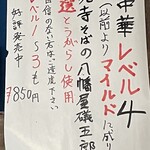 中華レベル4
(以前よりマイルドに成り
光寺そばの八幡屋礒五郎
とうがらし使用
自信のない方はご遠慮下さい
レベル1〜3も
好評発売中
850円